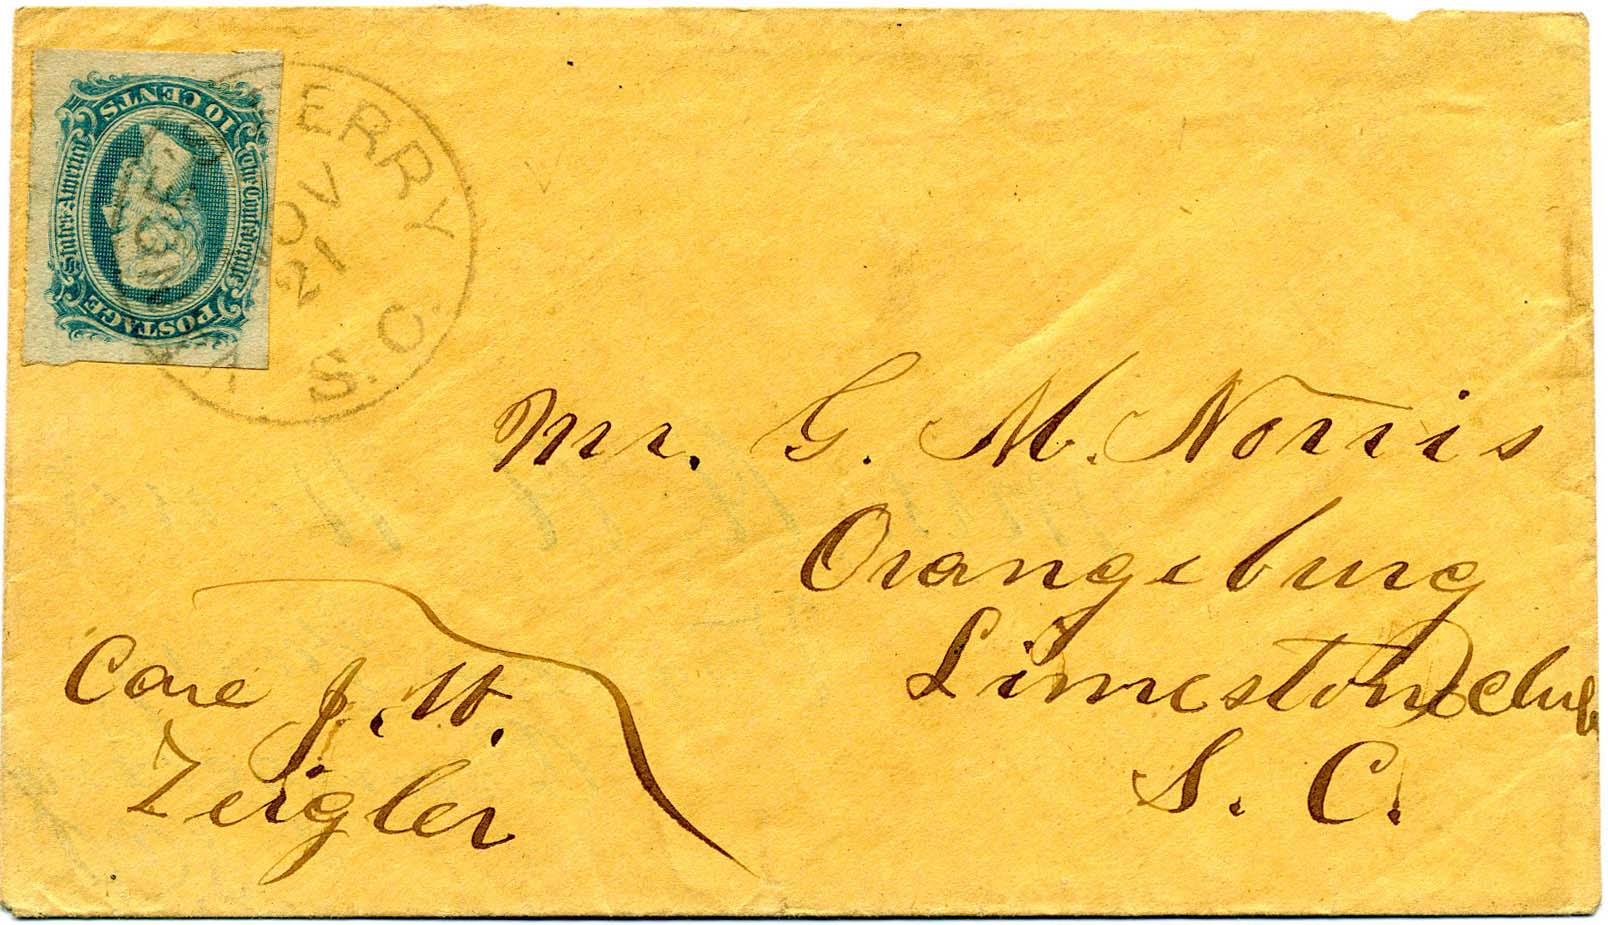 10 CENTS
The Confederate States America
POSTAGE
ERRY
OV
21
S. C.
Mr. G. M. Norris
Orangeburg
Limestone Club
S. C.
Care J. W.
Zeigler